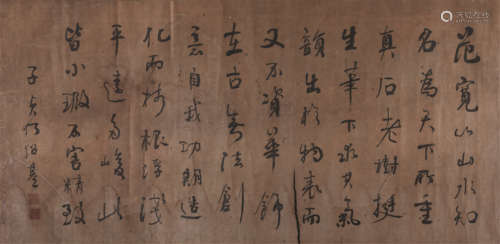 范寬以山水知
名為天下所重
真石老樹挺
生筆下求其氣
韻出於物表而
又不資華飾
在古無法創
意自我功期造
化而樹根浮淺
平遠多峻此
皆小瑕不害精致
子貞何紹基